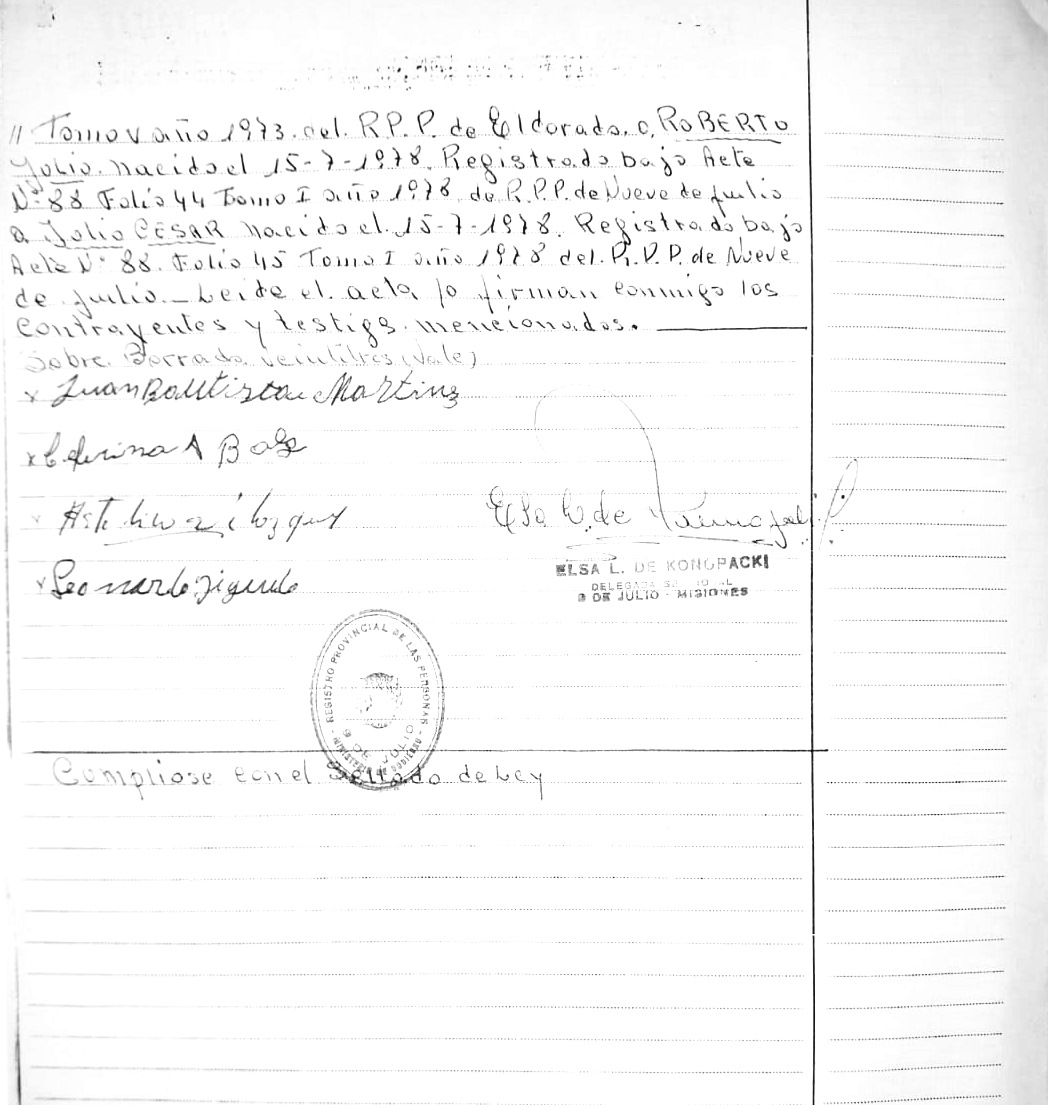 // Tomo V año 1973. del. R.P.P. de Eldorado. a. ROBERTO
Julio. nacido el 15-7-1978. Registrado bajo Acte
Nº 88 Folio 44 Tomo I año 1978 de R.P.P. de Nueve de Julio
a Julio CÉSAR nacido el. 15-7-1978. Registrado bajo
Acte Nº 88. Folio 45 Tomo I año 1978 del. R.P.P. de Nueve
de Julio. _ Leida el acta lo firman conmigo los
contrayentes y testigs. mencionados.
Sobre Borrado veintitres (vale)
x Juan Bautista Martinz
x Ceferina A
x
ELSA L. DE KONOPACKI
DELEGADA
9 DE JULIO - MISIONES
x Leonardo
REGISTRO PROVINCIAL DE LAS PERSONAS
9 DE JULIO
MINISTERIO DE GOBIERNO
Cumpliose con el Sellado de Ley